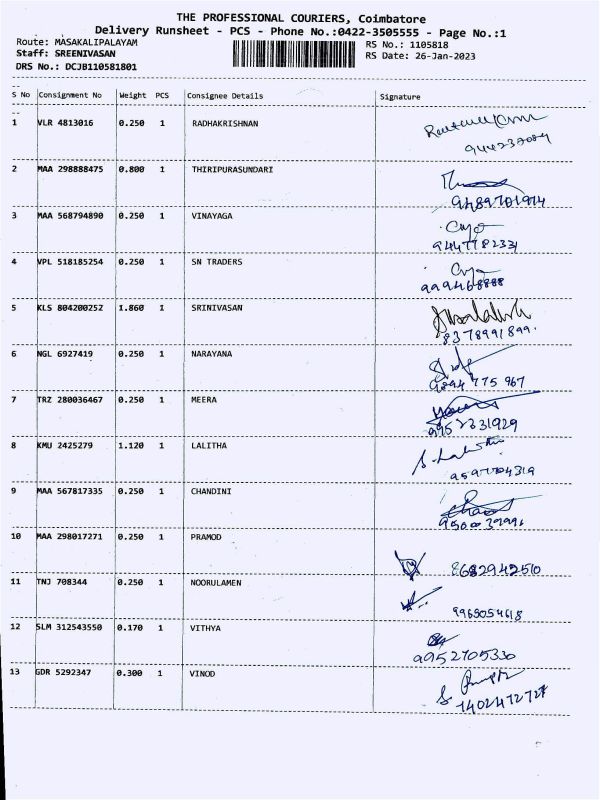 THE PROFESSIONAL COURIERS, Coimbatore
Delivery Runsheet - PCS - Phone No.:0422-3505555 - Page No.:1
Route: MASAKALIPALAYAM RS No.: 1105818
Staff: SREENIVASAN RS Date: 26-Jan-2023
DRS No.: DCJB110581801
S No Consignment No Weight PCS Consignee Details Signature
1 VLR 4813016 0.250 1 RADHAKRISHNAN
2 MAA 298888475 0.800 1 THIRIPURASUNDARI
9489701974
3 MAA 568794890 0.250 1 VINAYAGA
9447782334
4 VPL 518185254 0.250 1 SN TRADERS
999468888
5 KLS 804200252 1.860 1 SRINIVASAN
8378991899.
6 NGL 6927419 0.250 1 NARAYANA
9094 775 967
7 TRZ 280036467 0.250 1 MEERA
9952331929
8 KMU 2425279 1.120 1 LALITHA
9597704319
9 MAA 567817335 0.250 1 CHANDINI
10 MAA 298017271 0.250 1 PRAMOD
8682942510
11 TNJ 708344 0.250 1 NOORULAMEN
9968054618
12 SLM 312543550 0.170 1 VITHYA
9952705330
13 GDR 5292347 0.300 1 VINOD
7402472727